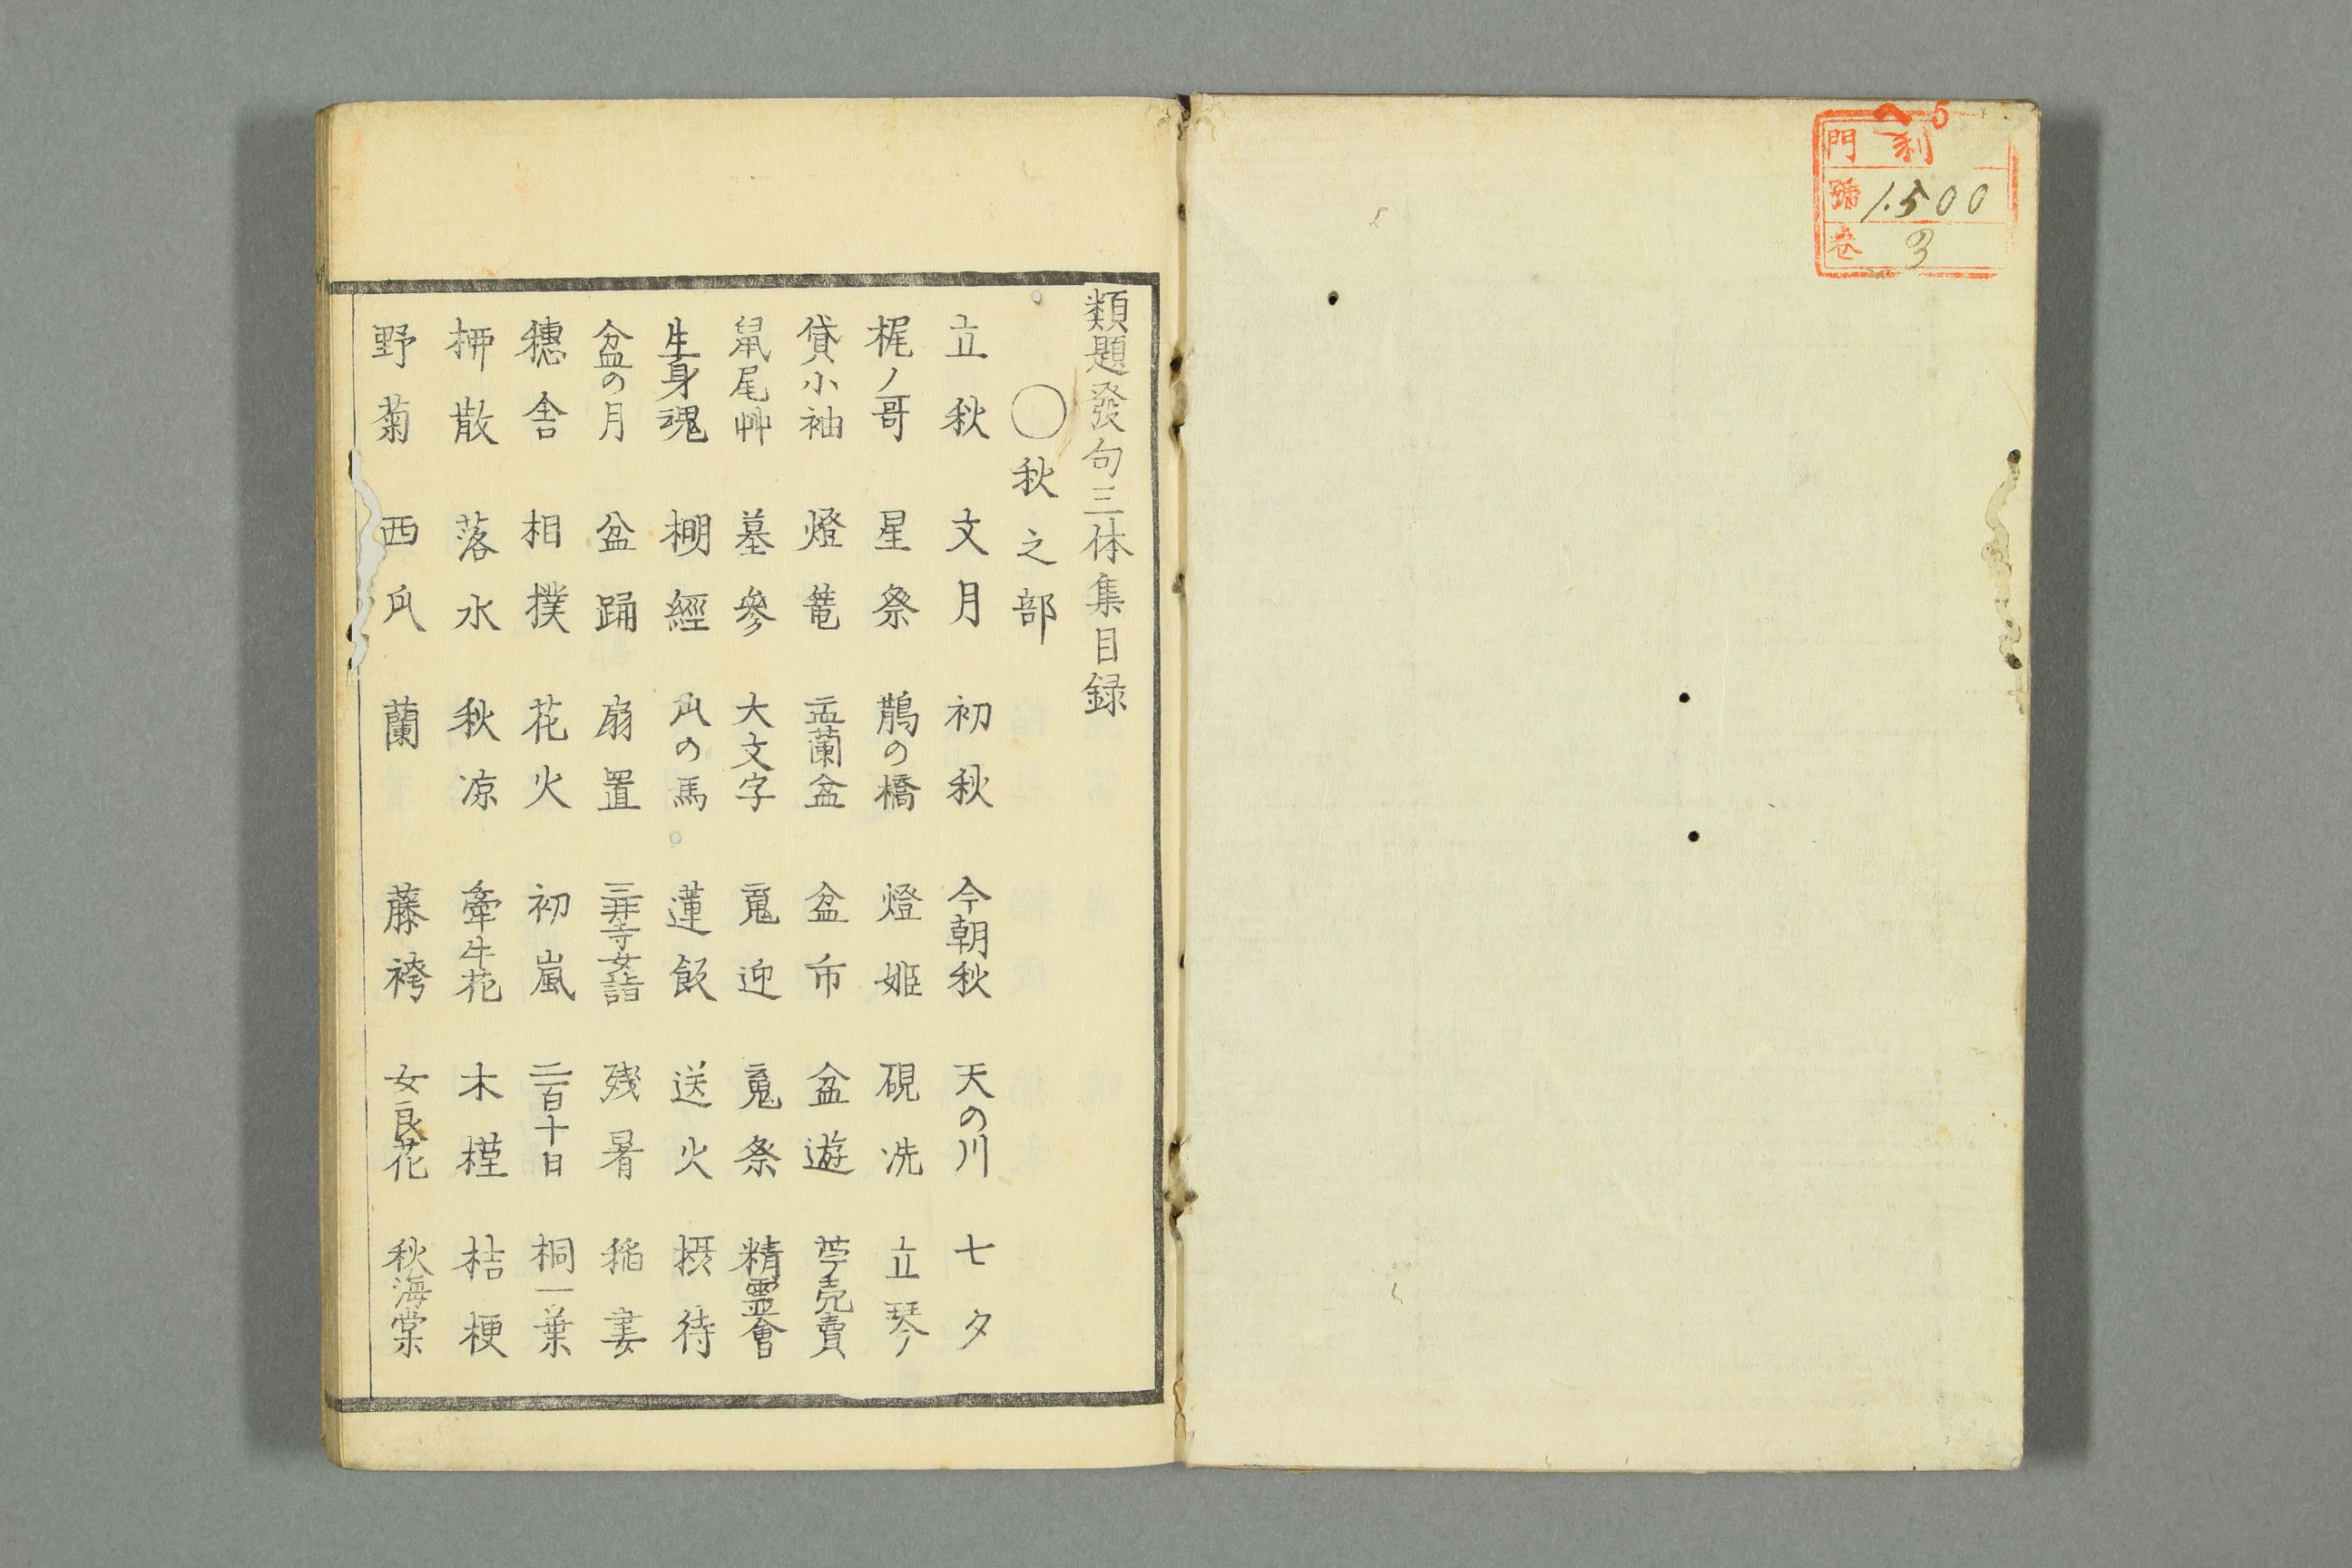 へ5
門 利
號 1500
卷 3
類題發句三体集目録
○秋之部
立秋 文月 初秋 今朝秋 天の川 七夕
梶ノ哥 星祭 鵲の橋 燈姫 硯洗 立琴
貸小袖 燈篭 盂蘭盆 盆市 盆遊 苧売賣
鼠尾艸 墓參 大文字 䰟迎 䰟祭 精霊會
生身魂 棚經 瓜の馬 蓮飯 送火 摂待
盆の月 盆踊 扇置 三井寺女詣 残暑 稲妻
穗舎 相撲 花火 初嵐 二百十日 桐一葉
栁散 落水 秋凉 牽牛花 木槿 桔梗
野菊 西瓜 蘭 藤袴 女良花 秋海棠